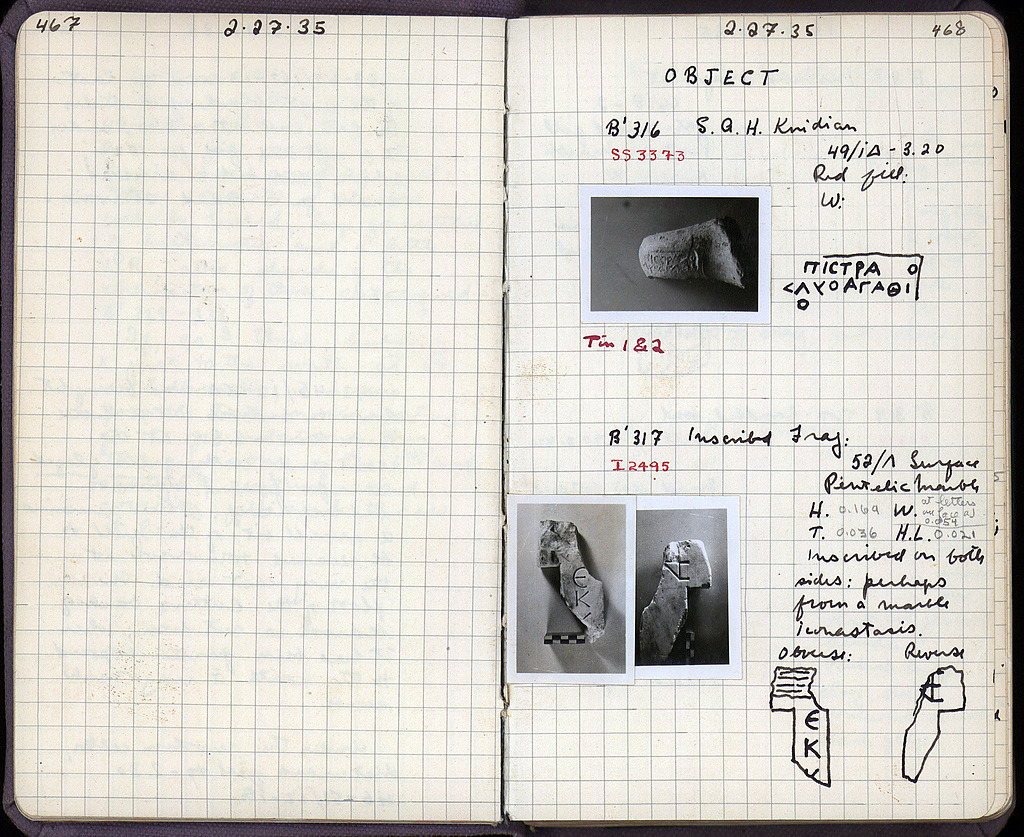 467
2·27·35
2·27·35
468
OBJECT
B'316 S.A.H. Knidian
SS 3373
49/ΙΔ - 3.20
Red fill:
W:
ΠΙCΤΡΑ Ο
<ΛΥΟΑΓΑΘΙ
Ο
Tin 1 & 2
B'317 Inscribed Frag:
I 2495
52/Λ Surface
Pentelic marble
H. 0.169 W. at letters on face a) 0.054
T. 0.036 H.L. 0.021
Inscribed on both
sides: perhaps
from a marble
iconastasis.
Obverse: Reverse
Є
Κ
Є